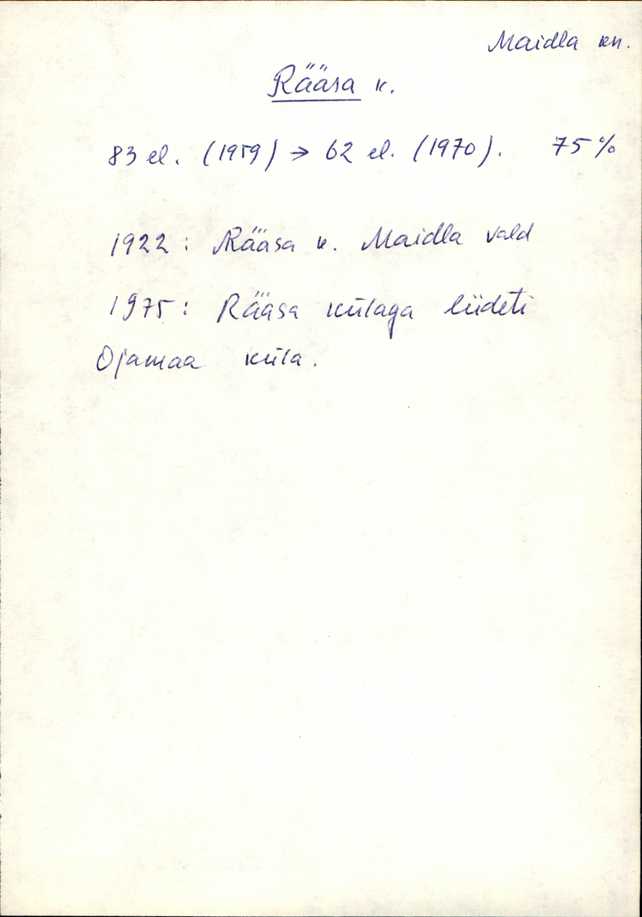 Maidla kn.
Rääsa k.
83 el. (1959) → 62 el. (1970). 75%
1922: Rääsa k. Maidla vald
1975: Rääsa külaga liideti
Ojamaa küla.